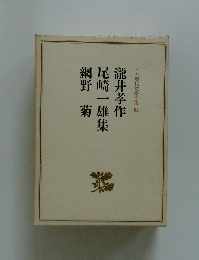 瀧井孝作
尾崎一雄集
網野 菊